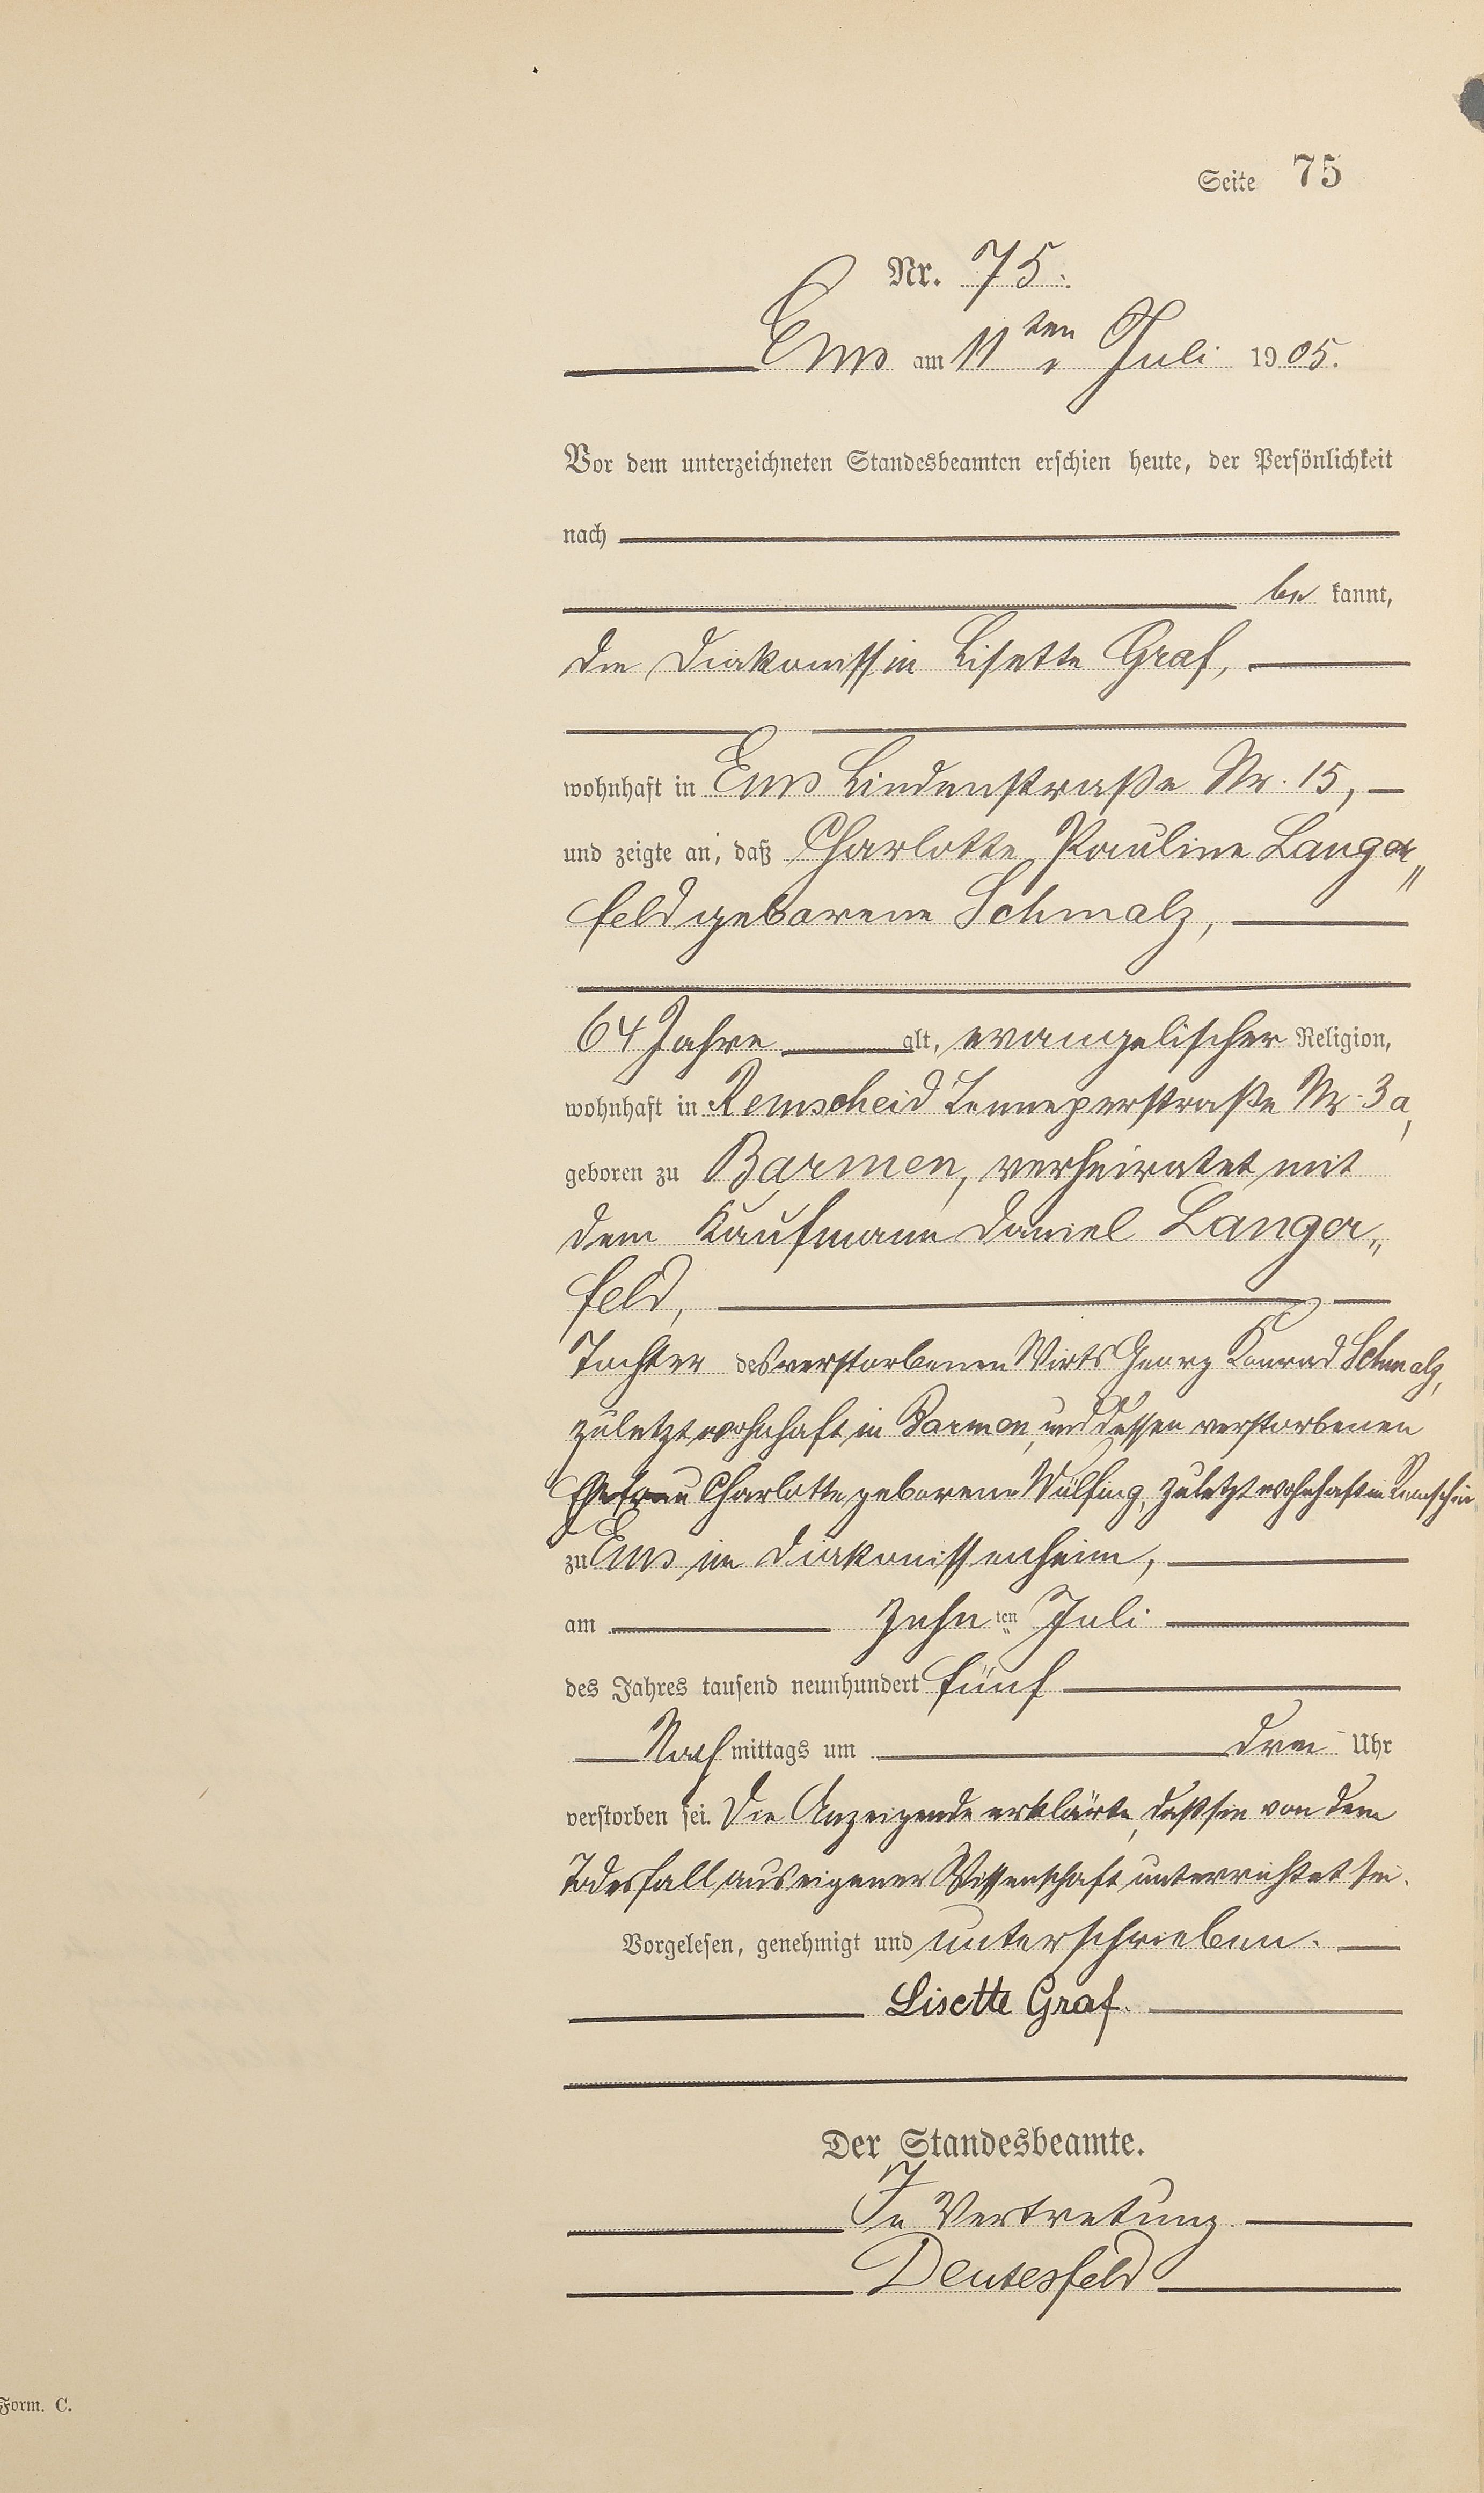 Seite 75
Nr. 75.
Ems am 11ten Juli 1905.
Vor dem unterzeichneten Standesbeamten erschien heute, der Persönlichkeit
nach
be kannt,
die Diakonissin Lisette Graf,
wohnhaft in Ems Lindenstraße Nr. 15,
und zeigte an, daß Charlotte Pauline Langer„
feld geborene Schmalz,
64 Jahre alt, evangelischer Religion,
wohnhaft in Remscheid Lenneperstraße Nr. 3a,
geboren zu Barmen, verheiratet mit
dem Kaufmann Daniel Langer„
feld,
Tochter des verstorbenen Wirts Georg Konrad Schmalz,
zuletzt wohnhaft in Barmen, und dessen verstorbenen
Ehefrau Charlotte geborene Wülfing, zuletzt wohnhaft in Remscheid
zu Ems im Diakonissenheim,
am zehnten Juli
des Jahres tausend neunhundert fünf
Nachmittags um drei Uhr
verstorben sei. Die Anzeigende erklärte, daß sie von dem
Todesfall aus eigener Wissenschaft unterrichtet sei.
Vorgelesen, genehmigt und unterschrieben.
Lisette Graf.
Der Standesbeamte.
In Vertretung.
Deutesfeld
Form. C.